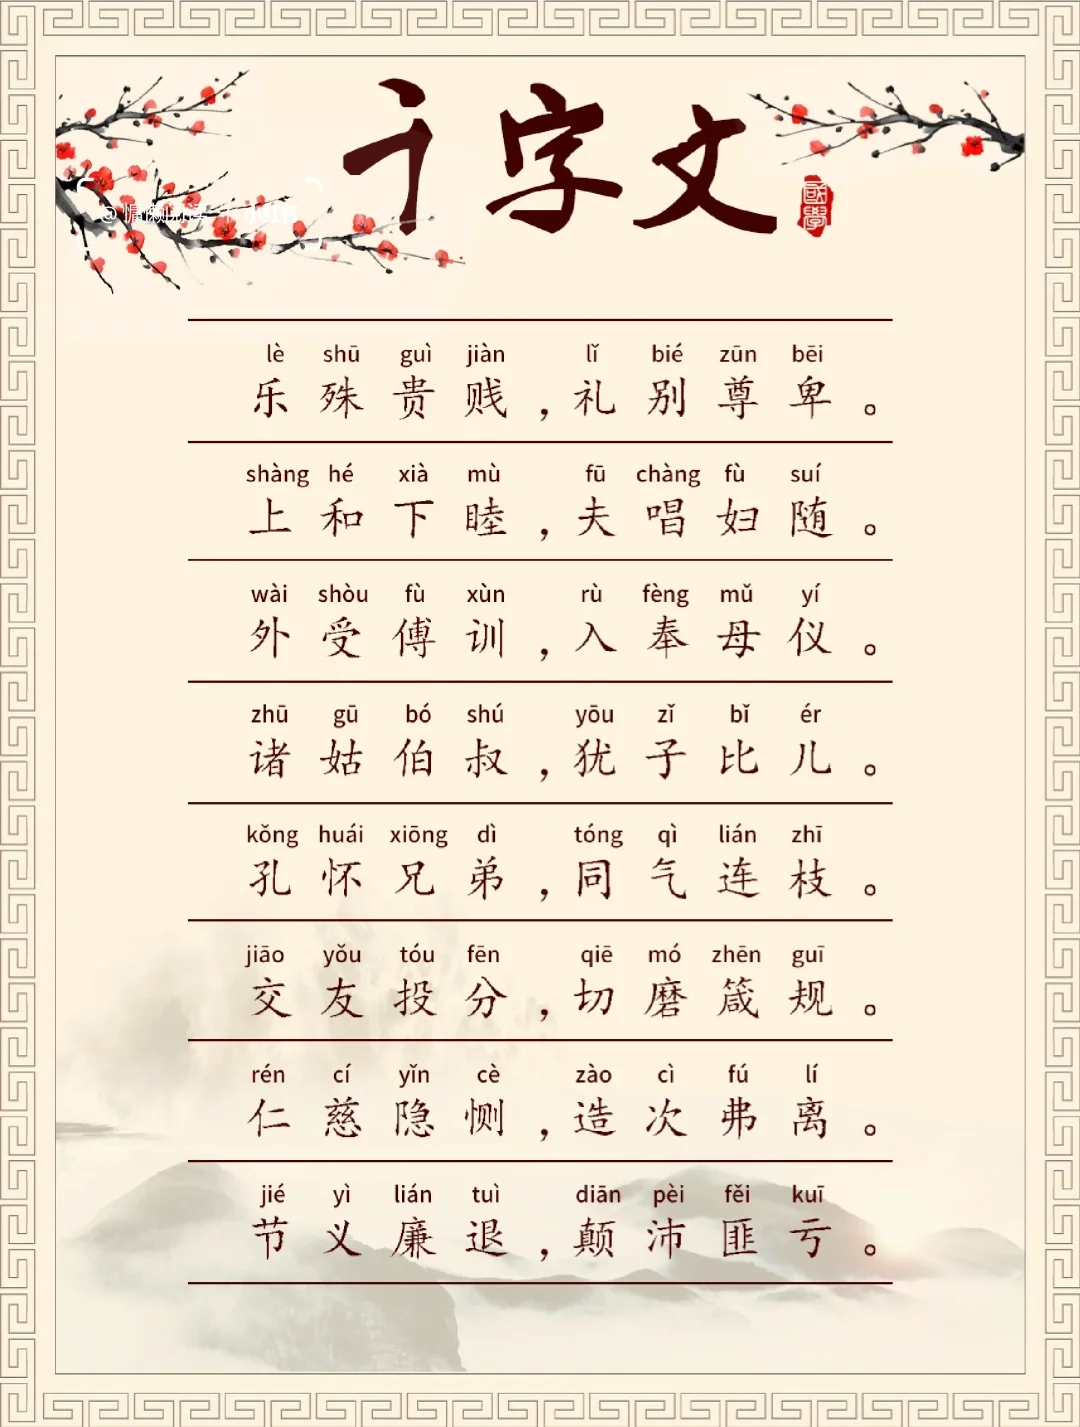 千字文
國學
lè shū guì jiàn lǐ bié zūn bēi
乐殊贵贱，礼别尊卑。
shàng hé xià mù fū chàng fù suí
上和下睦，夫唱妇随。
wài shòu fù xùn rù fèng mǔ yí
外受傅训，入奉母仪。
zhū gū bó shú yōu zǐ bǐ ér
诸姑伯叔，犹子比儿。
kǒng huái xiōng dì tóng qì lián zhī
孔怀兄弟，同气连枝。
jiāo yǒu tóu fēn qiē mó zhēn guī
交友投分，切磨箴规。
rén cí yǐn cè zào cì fú lí
仁慈隐恻，造次弗离。
jié yì lián tuì diān pèi fěi kuī
节义廉退，颠沛匪亏。